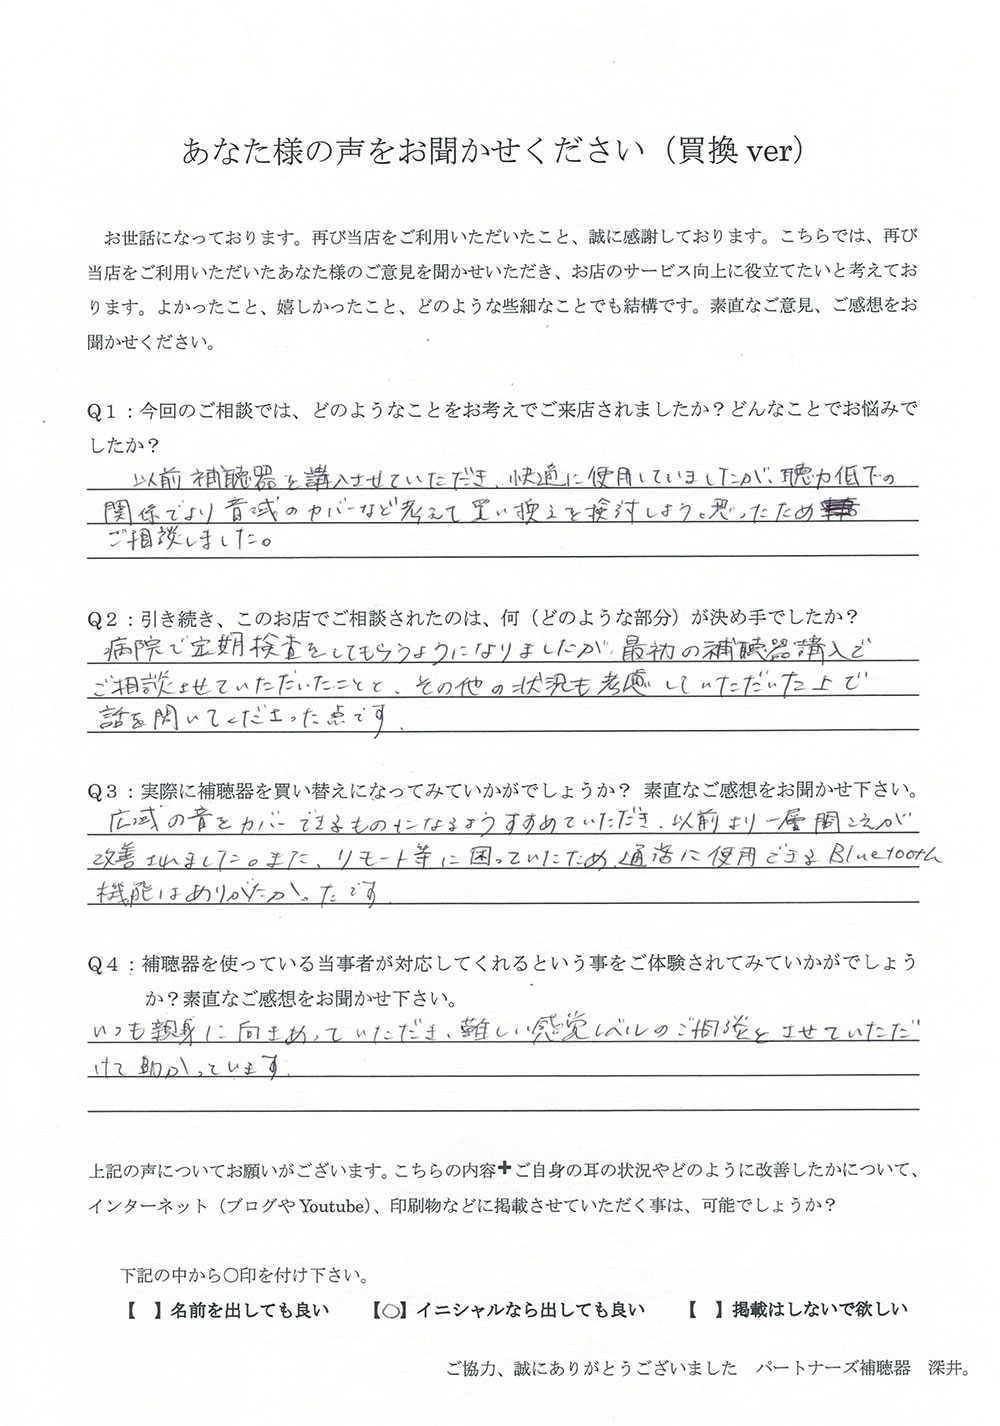 あなた様の声をお聞かせください（買換 ver）
お世話になっております。再び当店をご利用いただいたこと、誠に感謝しております。こちらでは、再び
当店をご利用いただいたあなた様のご意見を聞かせいただき、お店のサービス向上に役立てたいと考えてお
ります。よかったこと、嬉しかったこと、どのような些細なことでも結構です。素直なご意見、ご感想をお
聞かせください。
Q１：今回のご相談では、どのようなことをお考えでご来店されましたか？どんなことでお悩みで
したか？
以前補聴器を講入させていただき、快適に使用していましたが、聴力低下の
関係でより音域のカバーなど考えて買い換えを検討しようと思ったため
ご相談しました。
Q２：引き続き、このお店でご相談されたのは、何（どのような部分）が決め手でしたか？
病院で定期検査をしてもらうようになりましたが、最初の補聴器講入で
ご相談させていただいたことと、その他の状況も考慮していただいた上で
話を聞いてくださった点です。
Q３：実際に補聴器を買い替えになってみていかがでしょうか？ 素直なご感想をお聞かせ下さい。
広域の音をカバーできるものになるようすすめていただき、以前より一層聞こえが
改善されました。また、リモート等に困っていたため、通話に使用できるBluetooth
機能はありがたかったです。
Q４：補聴器を使っている当事者が対応してくれるという事をご体験されてみていかがでしょう
か？素直なご感想をお聞かせ下さい。
いつも親身に向きあっていただき、難しい感覚レベルのご相談をさせていただ
けて助かっています。
上記の声についてお願いがございます。こちらの内容＋ご自身の耳の状況やどのように改善したかについて、
インターネット（ブログや Youtube）、印刷物などに掲載させていただく事は、可能でしょうか？
下記の中から〇印を付け下さい。
【　】名前を出しても良い　【〇】イニシャルなら出しても良い　【　】掲載はしないで欲しい
ご協力、誠にありがとうございました　パートナーズ補聴器　深井。